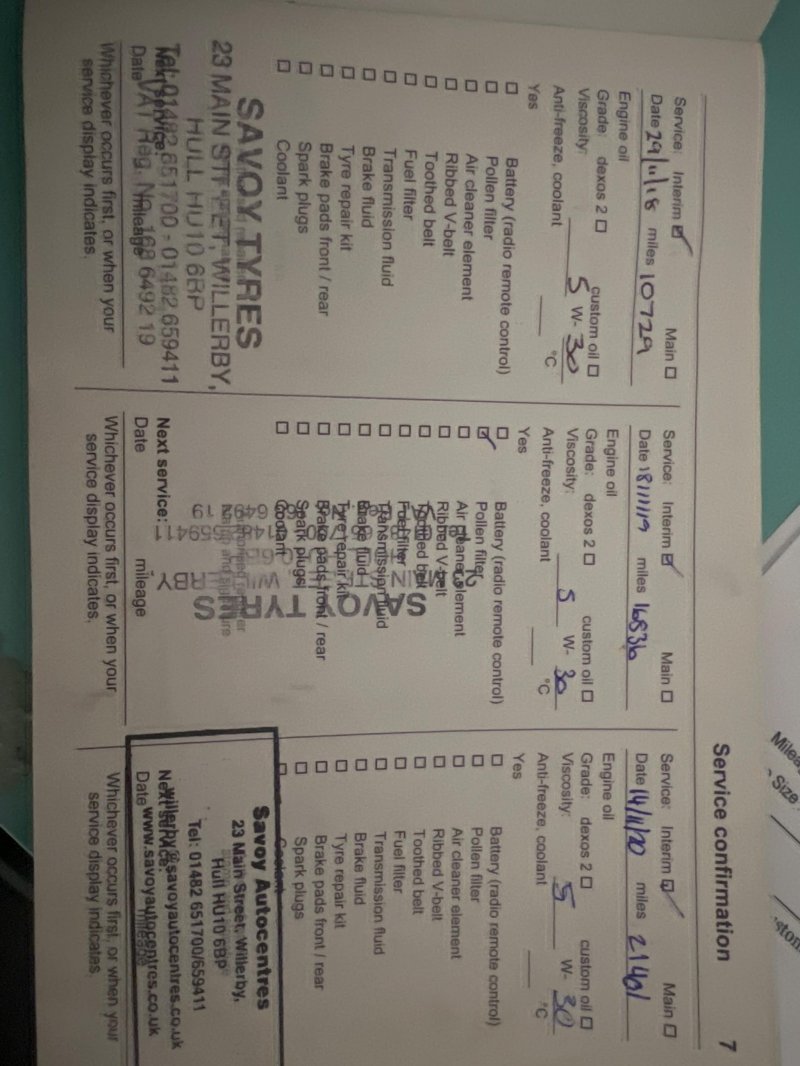 Service confirmation
7
Service: Interim ☑ Main ☐
Date 29/11/18 miles 10729
Engine oil
Grade: dexos 2 ☐ custom oil ☐
Viscosity: 5 W- 30
Anti-freeze, coolant °C
Yes
☐ Battery (radio remote control)
☐ Pollen filter
☐ Air cleaner element
☐ Ribbed V-belt
☐ Toothed belt
☐ Fuel filter
☐ Transmission fluid
☐ Brake fluid
☐ Tyre repair kit
☐ Brake pads front / rear
☐ Spark plugs
☐ Coolant
SAVOY TYRES
23 MAIN STREET, WILLERBY,
HULL HU10 6BP
Tel: 01482 651700 - 01482 659411
VAT Reg. No. 168 6492 19
Next service:
Date mileage
Whichever occurs first, or when your
service display indicates.
Service: Interim ☑ Main ☐
Date 18/11/19 miles 16836
Engine oil
Grade: dexos 2 ☐ custom oil ☐
Viscosity: 5 W- 30
Anti-freeze, coolant °C
Yes
☐ Battery (radio remote control)
☑ Pollen filter
☐ Air cleaner element
☐ Ribbed V-belt
☐ Toothed belt
☐ Fuel filter
☐ Transmission fluid
☐ Brake fluid
☐ Tyre repair kit
☐ Brake pads front / rear
☐ Spark plugs
☐ Coolant
SAVOY TYRES
Next service:
Date mileage
Whichever occurs first, or when your
service display indicates.
Service: Interim ☑ Main ☐
Date 14/11/20 miles 21461
Engine oil
Grade: dexos 2 ☐ custom oil ☐
Viscosity: 5 W- 30
Anti-freeze, coolant °C
Yes
☐ Battery (radio remote control)
☐ Pollen filter
☐ Air cleaner element
☐ Ribbed V-belt
☐ Toothed belt
☐ Fuel filter
☐ Transmission fluid
☐ Brake fluid
☐ Tyre repair kit
☐ Brake pads front / rear
☐ Spark plugs
☐ Coolant
Savoy Autocentres
23 Main Street, Willerby,
Hull HU10 6BP
Tel: 01482 651700/659411
willerby@savoyautocentres.co.uk
www.savoyautocentres.co.uk
Next service:
Date mileage
Whichever occurs first, or when your
service display indicates.
Size